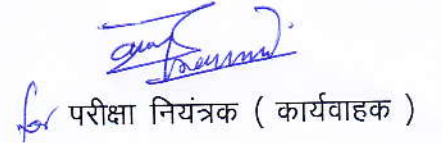 for परीक्षा नियंत्रक ( कार्यवाहक )